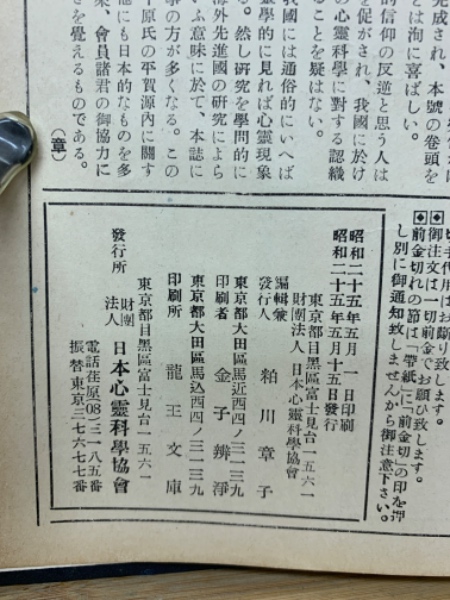 完成され、本號の卷頭を
とは洵に喜ばしい。
的信仰の反逆と思う人は
を促がされ、我國に於け
の心靈科學に對する認識
ることを疑はない。
我國には通俗的にいへば
靈學的に見れば心靈現象
る。然し研究を學問的に
海外先進國の研究によら
いふ意味に於て、本誌に
事の方が多くなる。この
平原氏の平賀源內に關す
他にも日本的なものを多
衆、會員諸君の御協力に
さを覺えるものである。
(章)
切手代用はお斷り致します。
◆御注文は一切前金でお願ひ致します。
◆前金切れの節は「帶紙」に「前金切」の印を押
し別に御通知致しませんから御注意下さい。
昭和二十五年五月一日印刷
昭和二十五年五月十五日發行
東京都目黑區富士見台一五六一
財團法人 日本心靈科學協會
編輯兼發行人 粕川章子
東京都大田區馬込西四ノ三一三九
印刷者 金子辨淨
東京都大田區馬込西四ノ三一三九
印刷所 龍王文庫
東京都目黑區富士見台一五六一
發行所 財團法人 日本心靈科學協會
電話荏原(08)三一八五番
振替東京三七六七七番